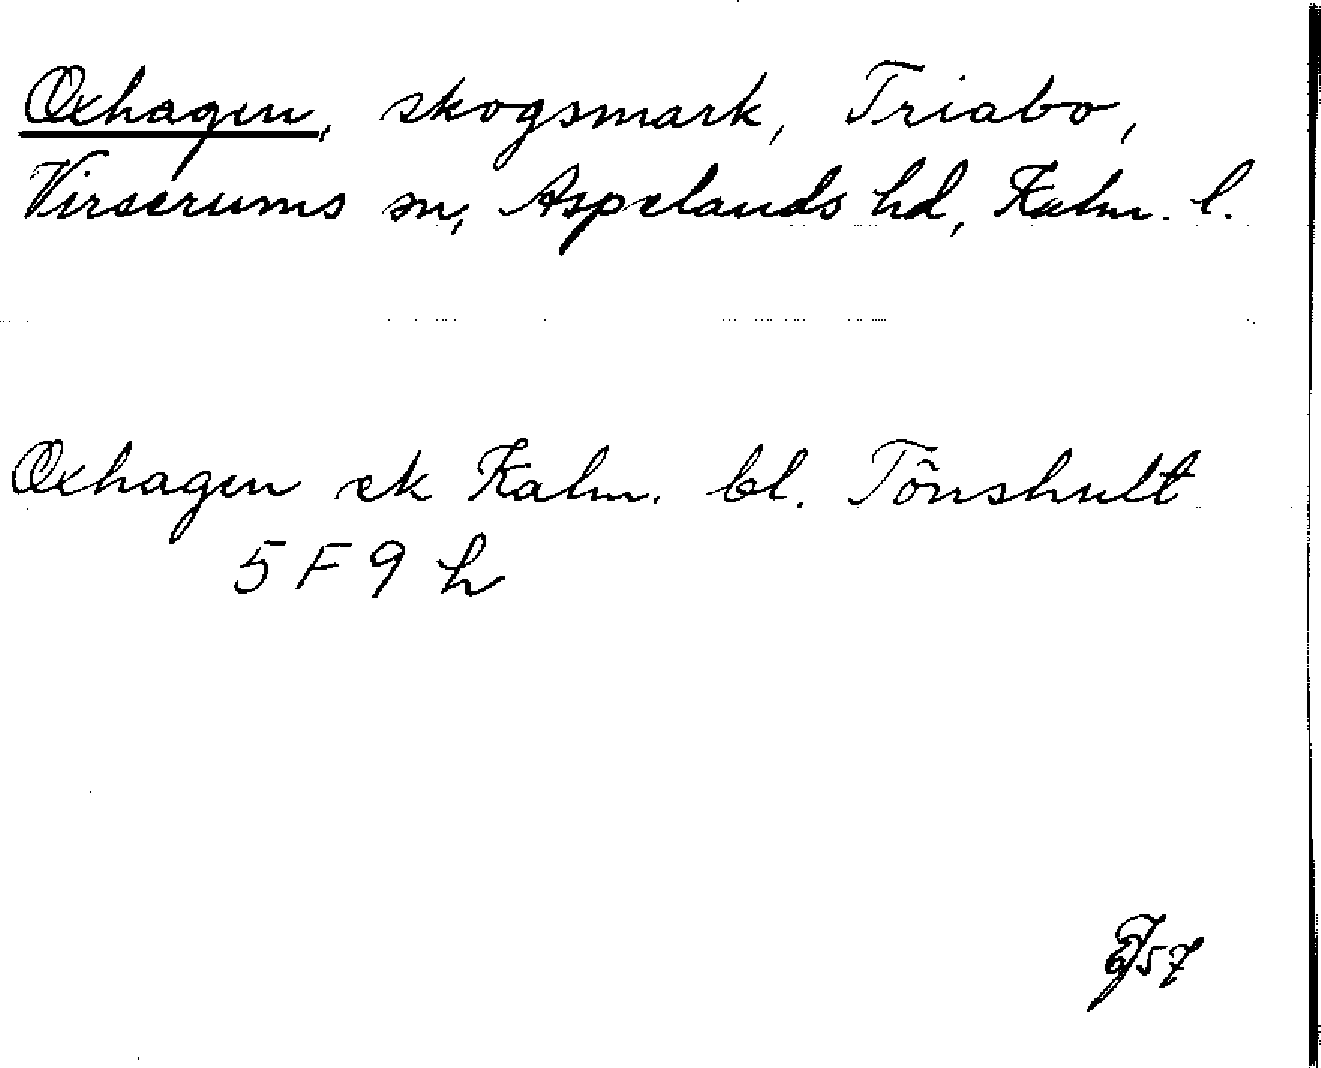 Oxhagen, skogsmark, Triabo,
Virserums sn, Aspelands hd, Kalm. l.
Oxhagen ek Kalm. bl. Tönshult
5 F 9 h
57